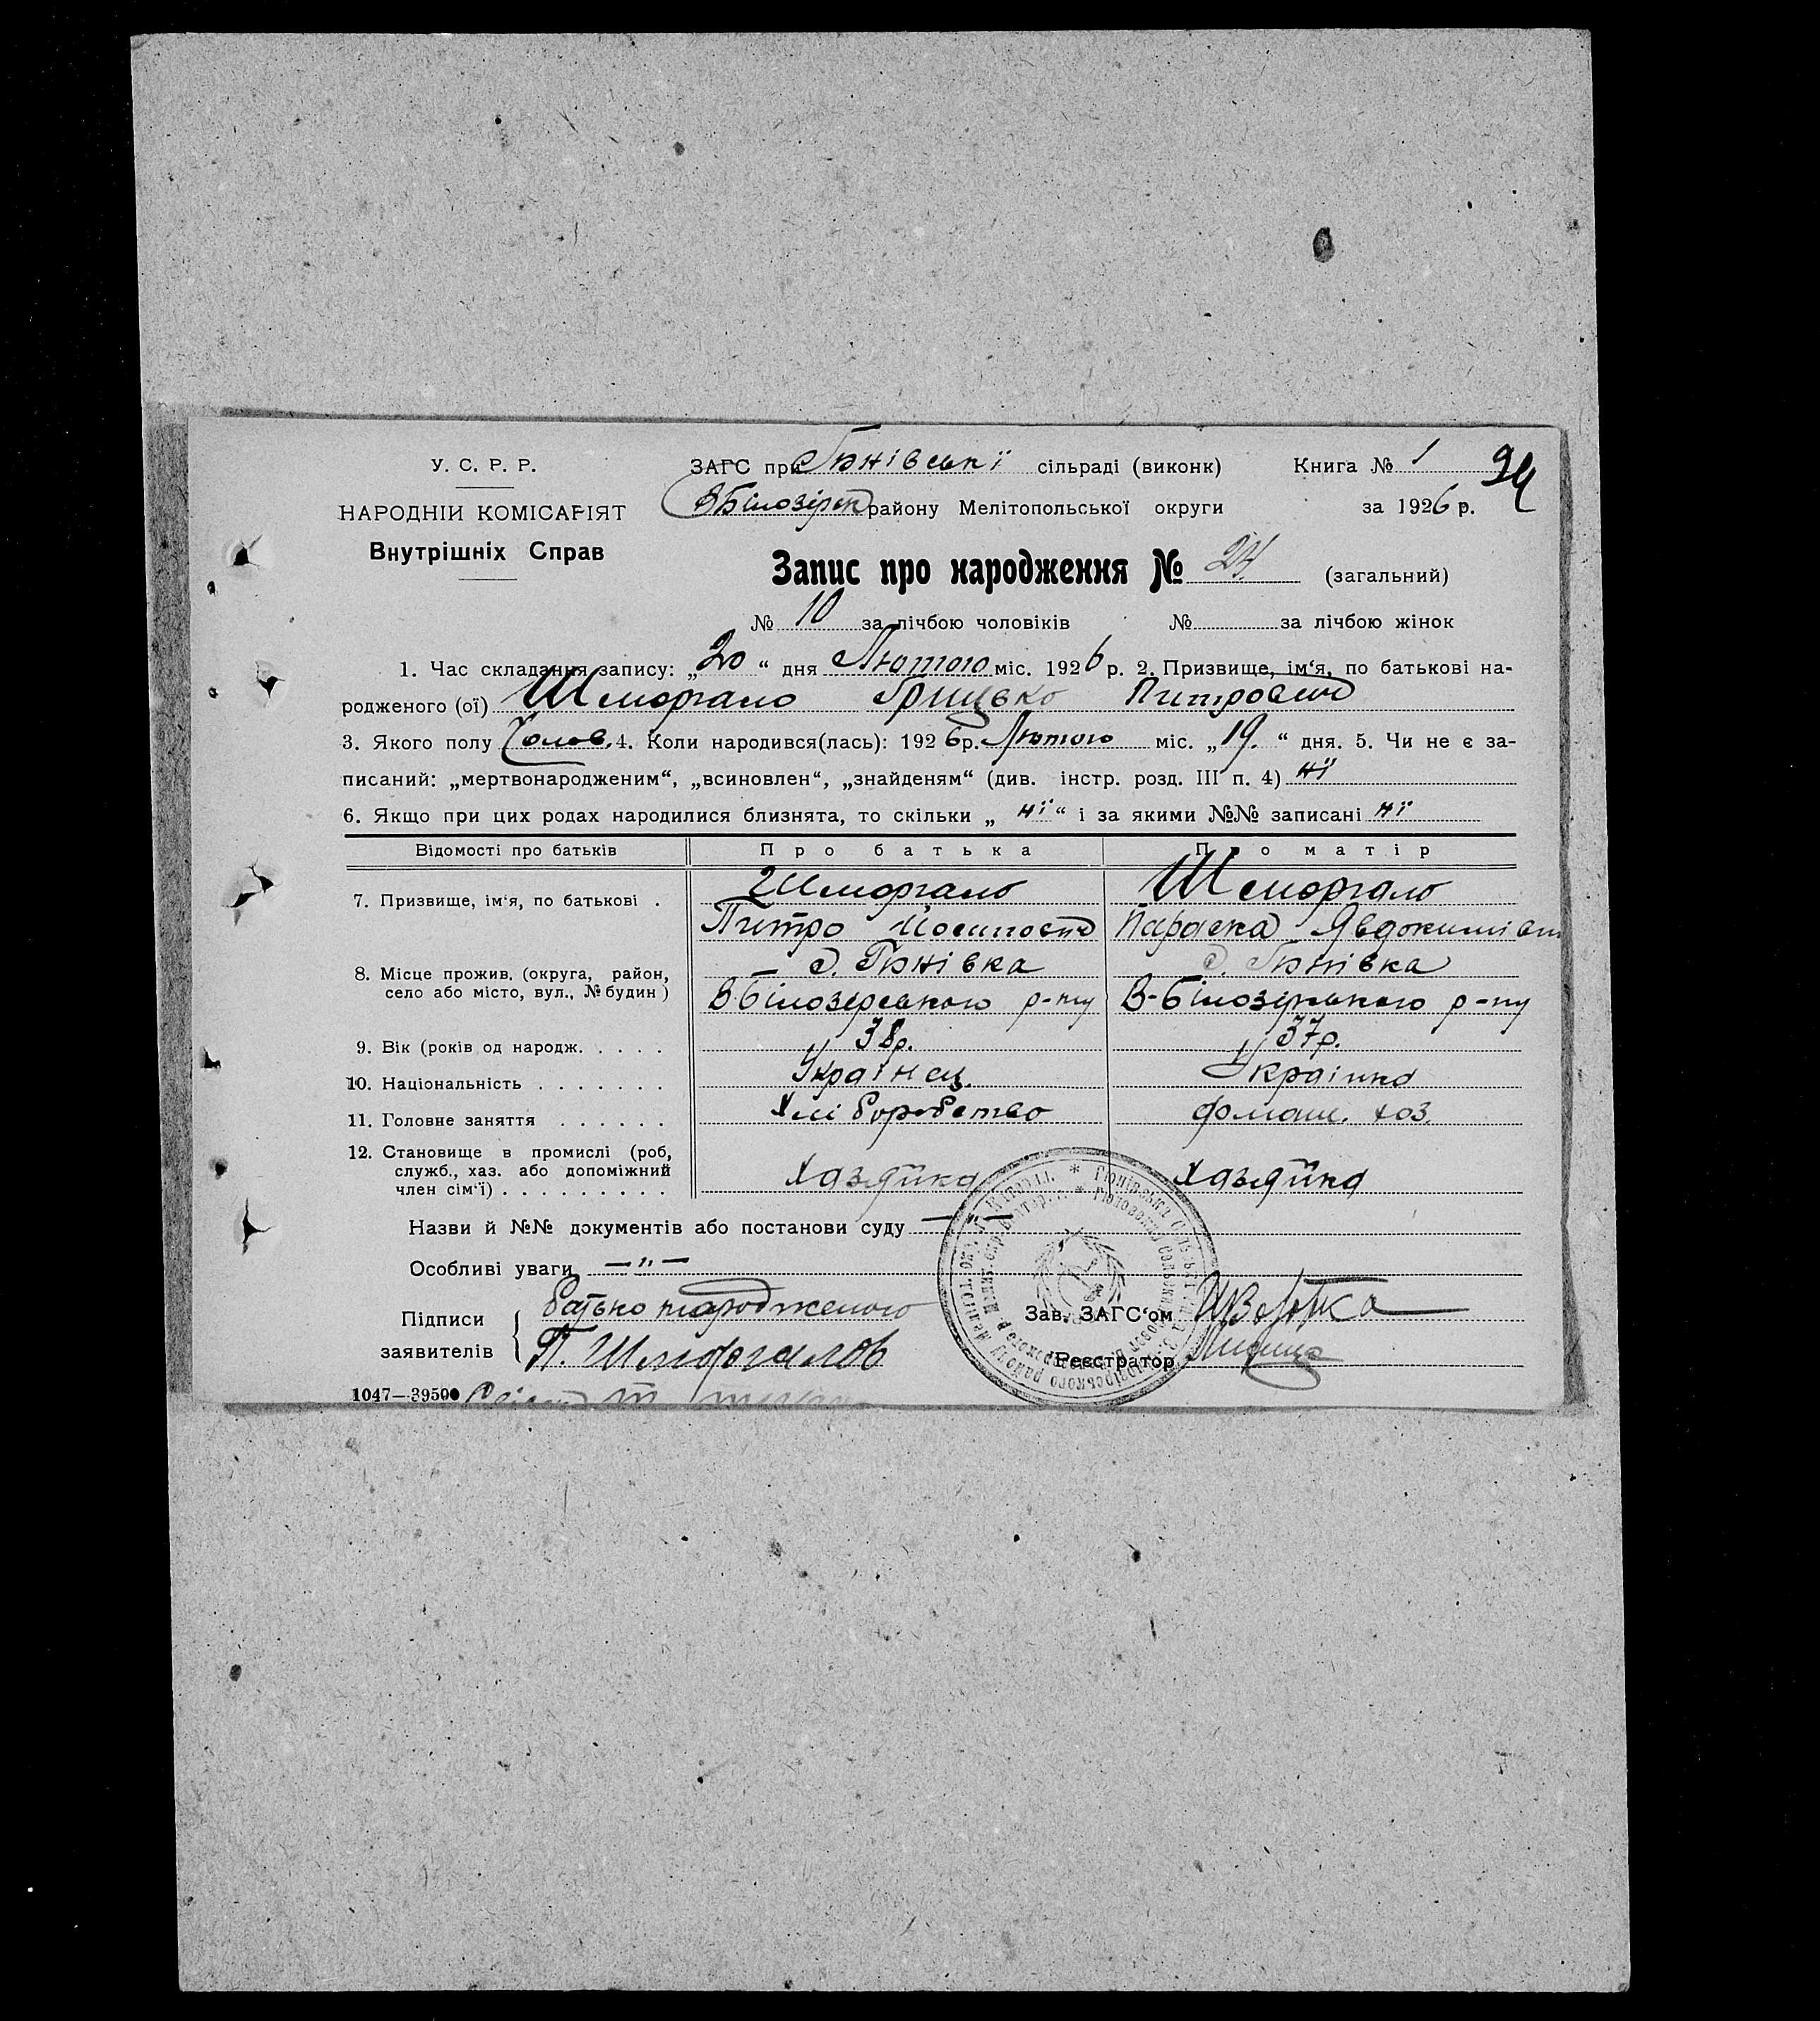 У. С. Р. Р.
НАРОДНІЙ КОМІСАРІЯТ
Внутрішніх Справ
ЗАГС при Гюнівські сільраді (виконк) Книга № 1 24
ВБілозірск району Мелітопольської округи за 1926 р.
Запис про народження № 24 (загальний)
№ 10 за лічбою чоловіків № за лічбою жінок
1. Час складання запису: „20“ дня Лютого міс. 1926 р. 2. Призвище, ім‘я, по батькові на-
родженого (ої) Шморгало Грицько Питрович
3. Якого полу Чолов. 4. Коли народився(лась): 1926 р. Лютого міс. „19.“ дня. 5. Чи не є за-
писаний: „мертвонародженим“, „всиновлен“, „знайденям“ (див. інстр. розд. III п. 4) ні
6. Якщо при цих родах народилися близнята, то скільки „ні“ і за якими №№ записані ні
Відомості про батьків Про батька Про матір
7. Призвище, ім‘я, по батькові . Шморгало Шморгало
Питро Йосипович Параска Явдокимівн
8. Місце прожив. (округа, район, с. Гюнівка с. Гюнівка
село або місто, вул., № будин) ВБілозерського р-ну В-Білозірського р-ну
9. Вік (років од народж. . . . . 38р. 37р.
10. Національність . . . . . . . Українец. Украінка
11. Головне заняття . . . . . . Хліборобство домаш. хоз.
12. Становище в промислі (роб,
служб., хаз. або допоміжний Хазяїна Хазяйка
член сім‘ї) . . . . . . . . .
Назви й №№ документів або постанови суду — " —
Особливі уваги — " —
Підписи заявителів
батько народженого
П. Шморгалов
Зав. ЗАГС‘ом
Реєстратор
1047—39500